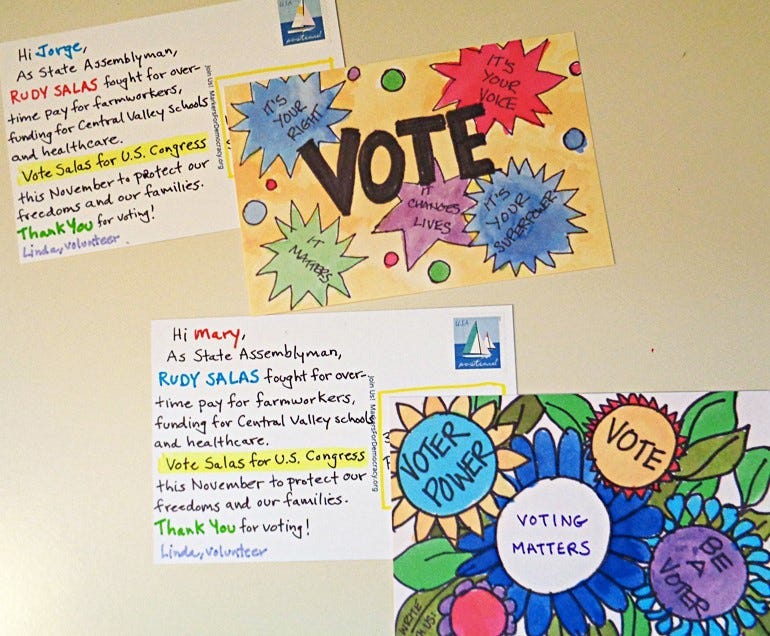 Hi Jorge,
As State Assemblyman,
RUDY SALAS fought for over-
time pay for farmworkers,
funding for Central Valley Schools
and healthcare.
Vote Salas for U.S. Congress
this November to protect our
freedoms and our families.
Thank You for voting!
Linda, Volunteer
USA
postcard
Join Us! MarkersForDemocracy.org
IT'S
YOUR
RIGHT
IT'S
YOUR
VOICE
VOTE
IT
CHANGES
LIVES
IT'S
YOUR
SUPERPOWER
IT
MATTERS
Hi Mary,
As State Assemblyman,
RUDY SALAS fought for over-
time pay for farmworkers,
funding for Central Valley schools
and healthcare.
Vote Salas for U.S. Congress
this November to protect our
freedoms and our families.
Thank You for voting!
Linda, Volunteer
USA
postcard
Join Us! MarkersForDemocracy.org
VOTER
POWER
VOTE
VOTING
MATTERS
BE
A
VOTER
WRITE